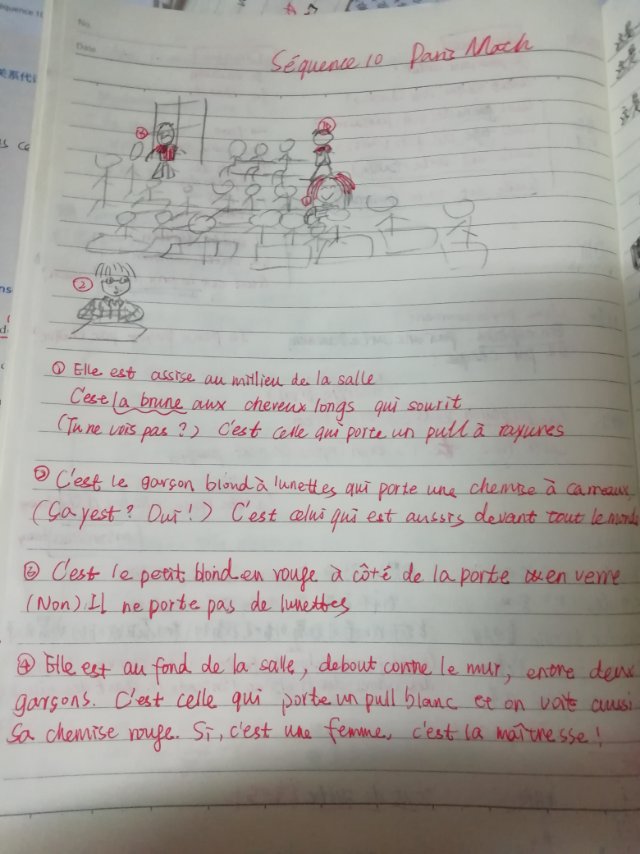 No.
Date
Séquence 10 Paris Mach
④
③
①
②
① Elle est assise au millieu de la salle
C'est la brune aux cheveux longs qui sourit.
(Tu ne vois pas?) C'est celle qui porte un pull à rayures
② C'est le garçon blond à lunettes qui porte une chemise à carreaux
(Ça yest? Oui!) C'est celui qui est aussis devant tout le monde
③ C'est le petit blond en rouge à côté de la porte en verre
(Non) Il ne porte pas de lunettes
④ Elle est au fond de la salle, debout contre le mur, entre deux
garçons. C'est celle qui porte un pull blanc et on voit aussi
sa chemise rouge. Si, c'est une femme, c'est la maîtresse!